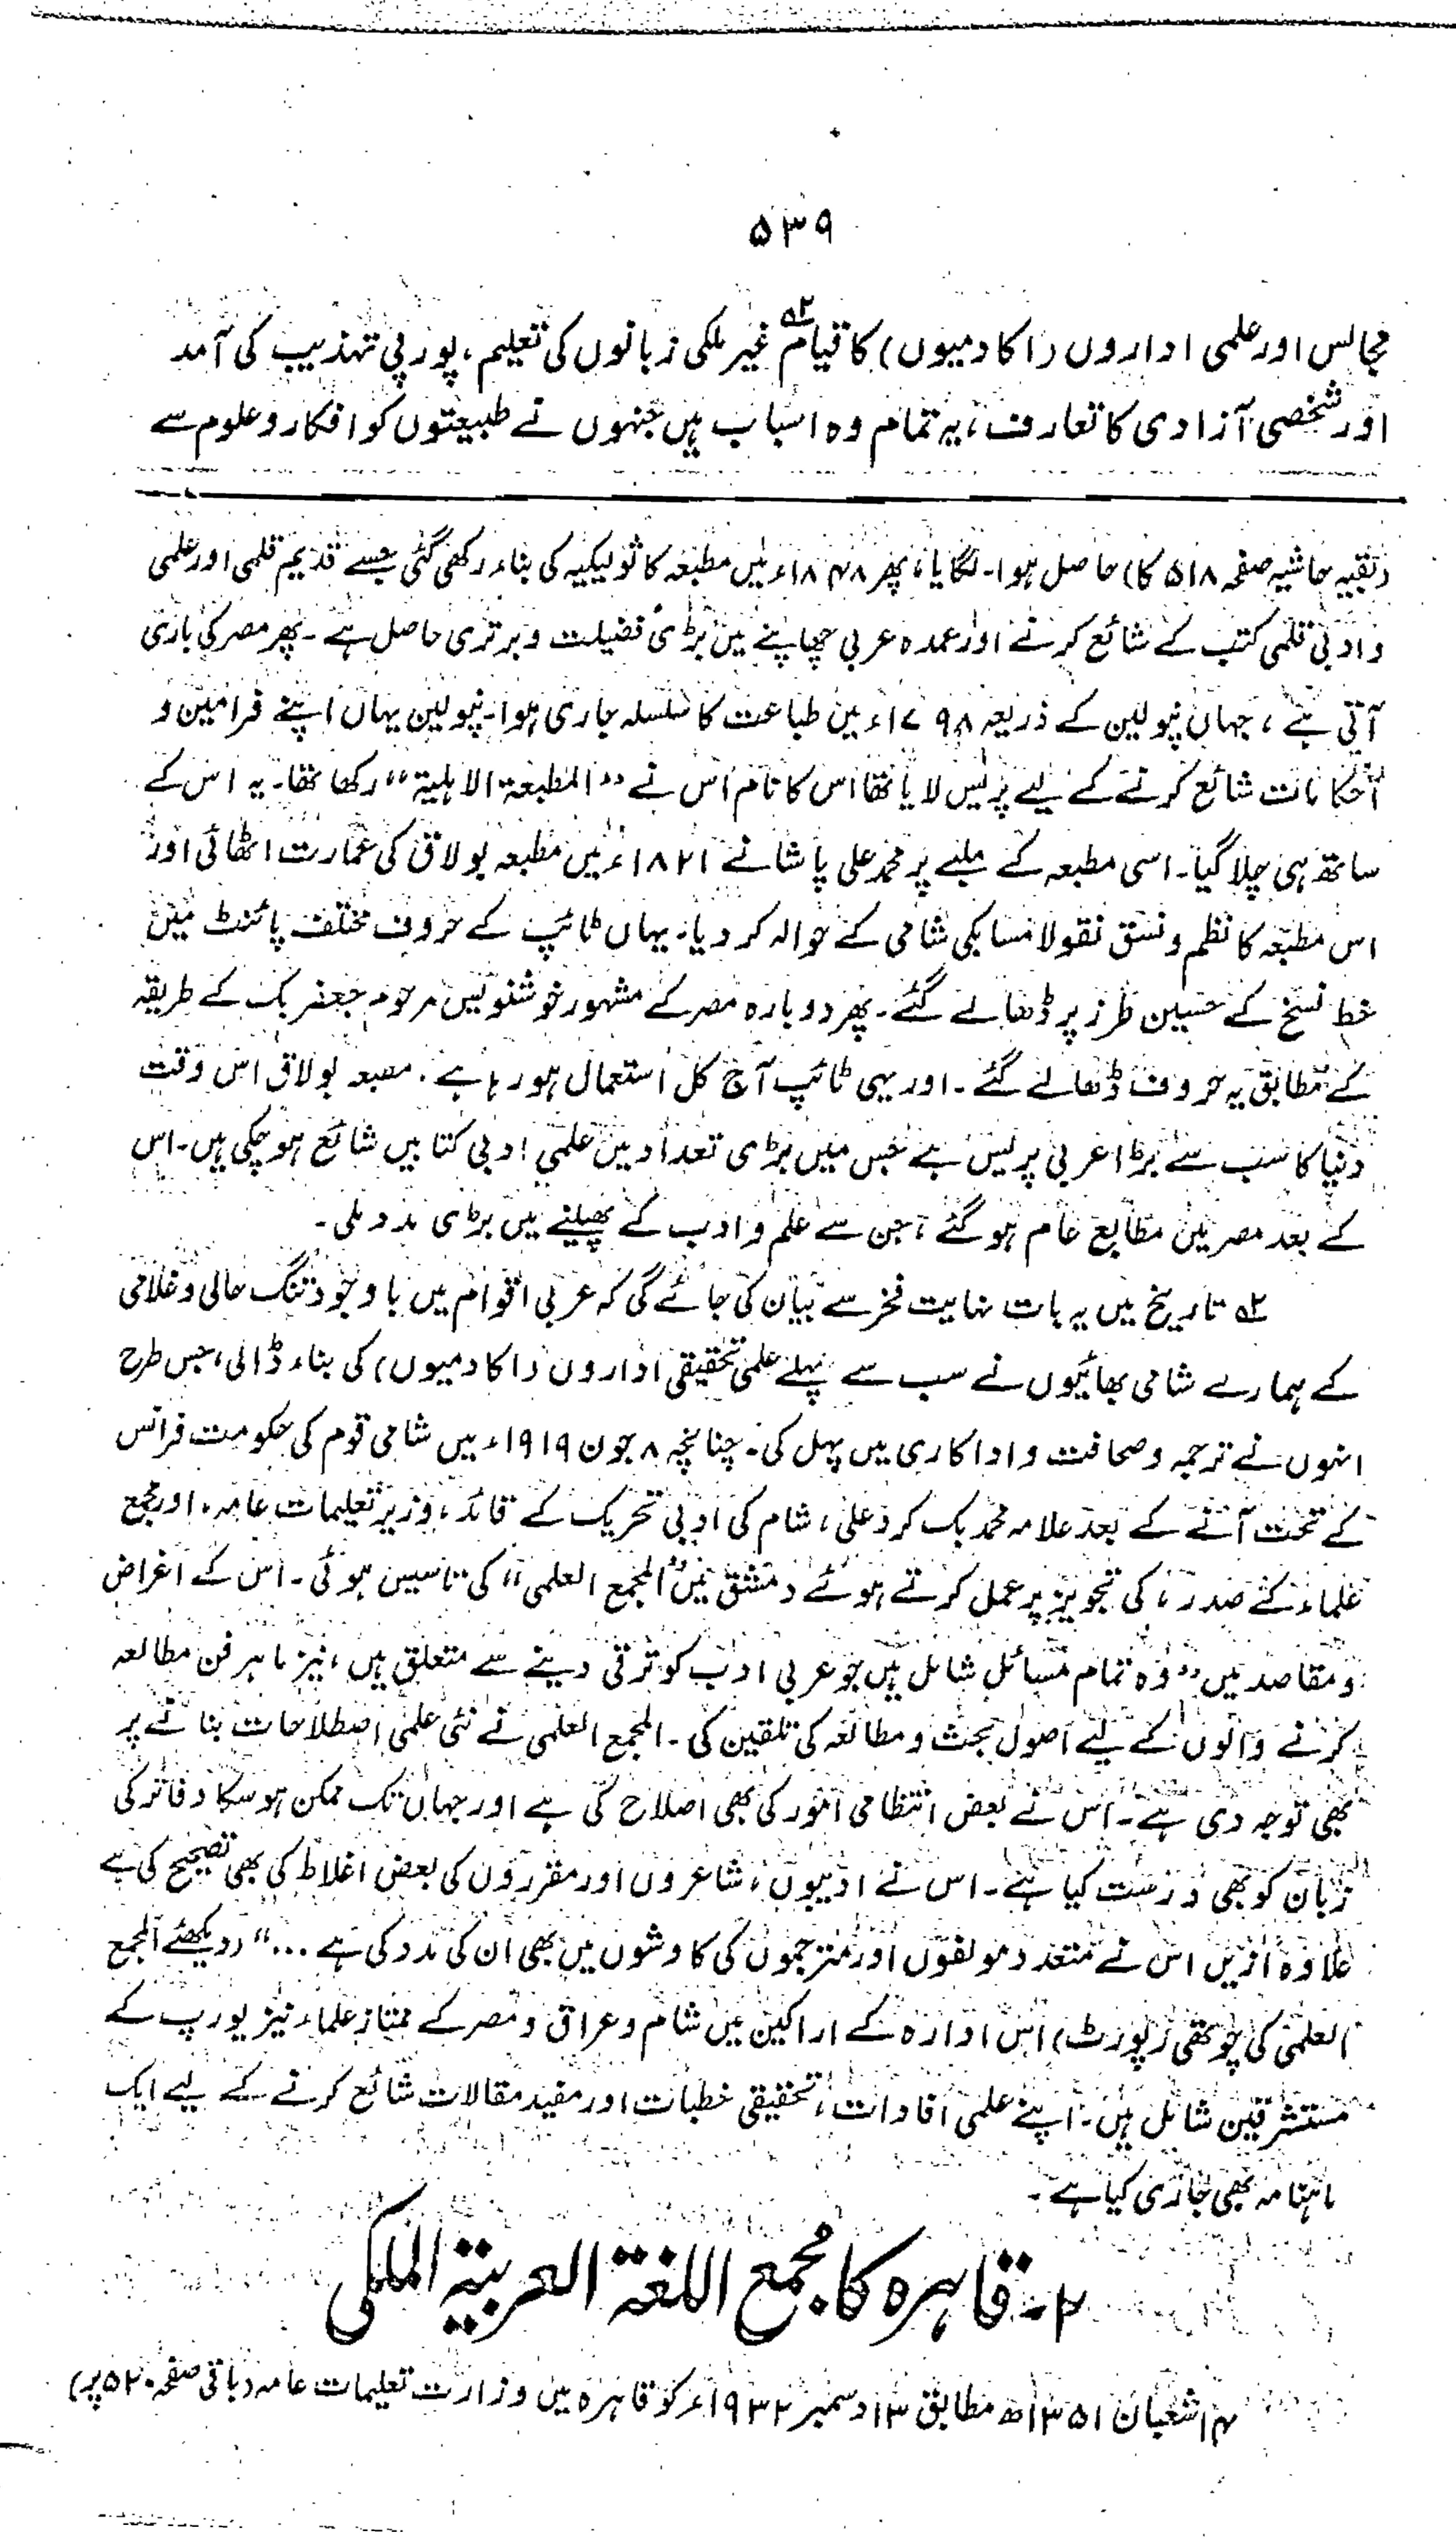 ۵۳۹
مجالس اور علمی اداروں (اکادمیوں) کا قیام۲؎ غیر ملکی زبانوں کی تعلیم، یورپی تہذیب کی آمد
اور شخصی آزادی کا تعارف، یہ تمام وہ اسباب ہیں جنہوں نے طبیعتوں کو افکار و علوم سے
(بقیہ حاشیہ صفحہ ۵۱۸ کا) حاصل ہوا۔ لگایا، پھر ۱۸۴۸ء میں مطبعہ کاثولیکیہ کی بناء رکھی گئی جسے قدیم قلمی اور علمی
و ادبی قلمی کتب کے شائع کرنے اور عمدہ عربی چھاپنے میں بڑی فضیلت و برتری حاصل ہے۔ پھر مصر کی باری
آتی ہے، جہاں نپولین کے ذریعہ ۱۷۹۸ء میں طباعت کا سلسلہ جاری ہوا۔ نپولین یہاں اپنے فرامین و
احکامات شائع کرنے کے لیے پریس لایا تھا اس کا نام اس نے ”المطبعۃ الاہلیۃ“ رکھا تھا۔ یہ اس کے
ساتھ ہی چلا گیا۔ اسی مطبعہ کے ملبے پر محمد علی پاشا نے ۱۸۲۱ء میں مطبعہ بولاق کی عمارت اٹھائی اور
اس مطبعہ کا نظم و نسق نقولا مسابکی شامی کے حوالہ کر دیا۔ یہاں ٹائپ کے حروف مختلف پائنٹ میں
خط نسخ کے حسین طرز پر ڈھالے گئے۔ پھر دوبارہ مصر کے مشہور خوشنویس مرحوم جعفر بک کے طریقہ
کے مطابق یہ حروف ڈھالے گئے۔ اور یہی ٹائپ آج کل استعمال ہو رہا ہے۔ مصبعہ بولاق اس وقت
دنیا کا سب سے بڑا عربی پریس ہے جس میں بڑی تعداد میں علمی ادبی کتابیں شائع ہو چکی ہیں۔ اس
کے بعد مصر میں مطابع عام ہو گئے، جن سے علم و ادب کے پھیلنے میں بڑی مدد ملی۔
۲؎ تاریخ میں یہ بات نہایت فخر سے بیان کی جائے گی کہ عربی اقوام میں باوجود تنگ حالی و غلامی
کے ہمارے شامی بھائیوں نے سب سے پہلے علمی تحقیقی اداروں (اکادمیوں) کی بناء ڈالی، جس طرح
انہوں نے ترجمہ و صحافت و اداکاری میں پہل کی۔ چنانچہ ۸ جون ۱۹۱۹ء میں شامی قوم کی حکومت فرانس
کے تحت آنے کے بعد علامہ محمد بک کرد علی، شام کی ادبی تحریک کے قائد، وزیر تعلیمات عامہ، اور مجمع
علماء کے صدر، کی تجویز پر عمل کرتے ہوئے دمشق میں ”المجمع العلمی“ کی تاسیس ہوئی۔ اس کے اغراض
و مقاصد میں ”وہ تمام مسائل شامل ہیں جو عربی ادب کو ترقی دینے سے متعلق ہیں، نیز ماہر فن مطالعہ
کرنے والوں کے لیے اصول بحث و مطالعہ کی تلقین کی۔ المجمع العلمی نے نئی علمی اصطلاحات بنانے پر
بھی توجہ دی ہے۔ اس نے بعض انتظامی امور کی بھی اصلاح کی ہے اور جہاں تک ممکن ہو سکا دفاتر کی
زبان کو بھی درست کیا ہے۔ اس نے ادیبوں، شاعروں اور مقرروں کی بعض اغلاط کی بھی تصحیح کی ہے
علاوہ ازیں اس نے متعدد مولفوں اور مترجموں کی کاوشوں میں بھی ان کی مدد کی ہے ...“ (دیکھئے المجمع
العلمی کی چوتھی رپورٹ) اس ادارہ کے اراکین میں شام و عراق و مصر کے ممتاز علماء نیز یورپ کے
مستشرقین شامل ہیں۔ اپنے علمی افادات، تحقیقی خطبات اور مفید مقالات شائع کرنے کے لیے ایک
ماہنامہ بھی جاری کیا ہے۔
۲۔ قاہرہ کا مجمع اللغۃ العربیۃ الملکی
۱۴ شعبان ۱۳۵۱ھ مطابق ۱۳ دسمبر ۱۹۳۲ء کو قاہرہ میں وزارت تعلیمات عامہ (باقی صفحہ ۵۲۰ پر)